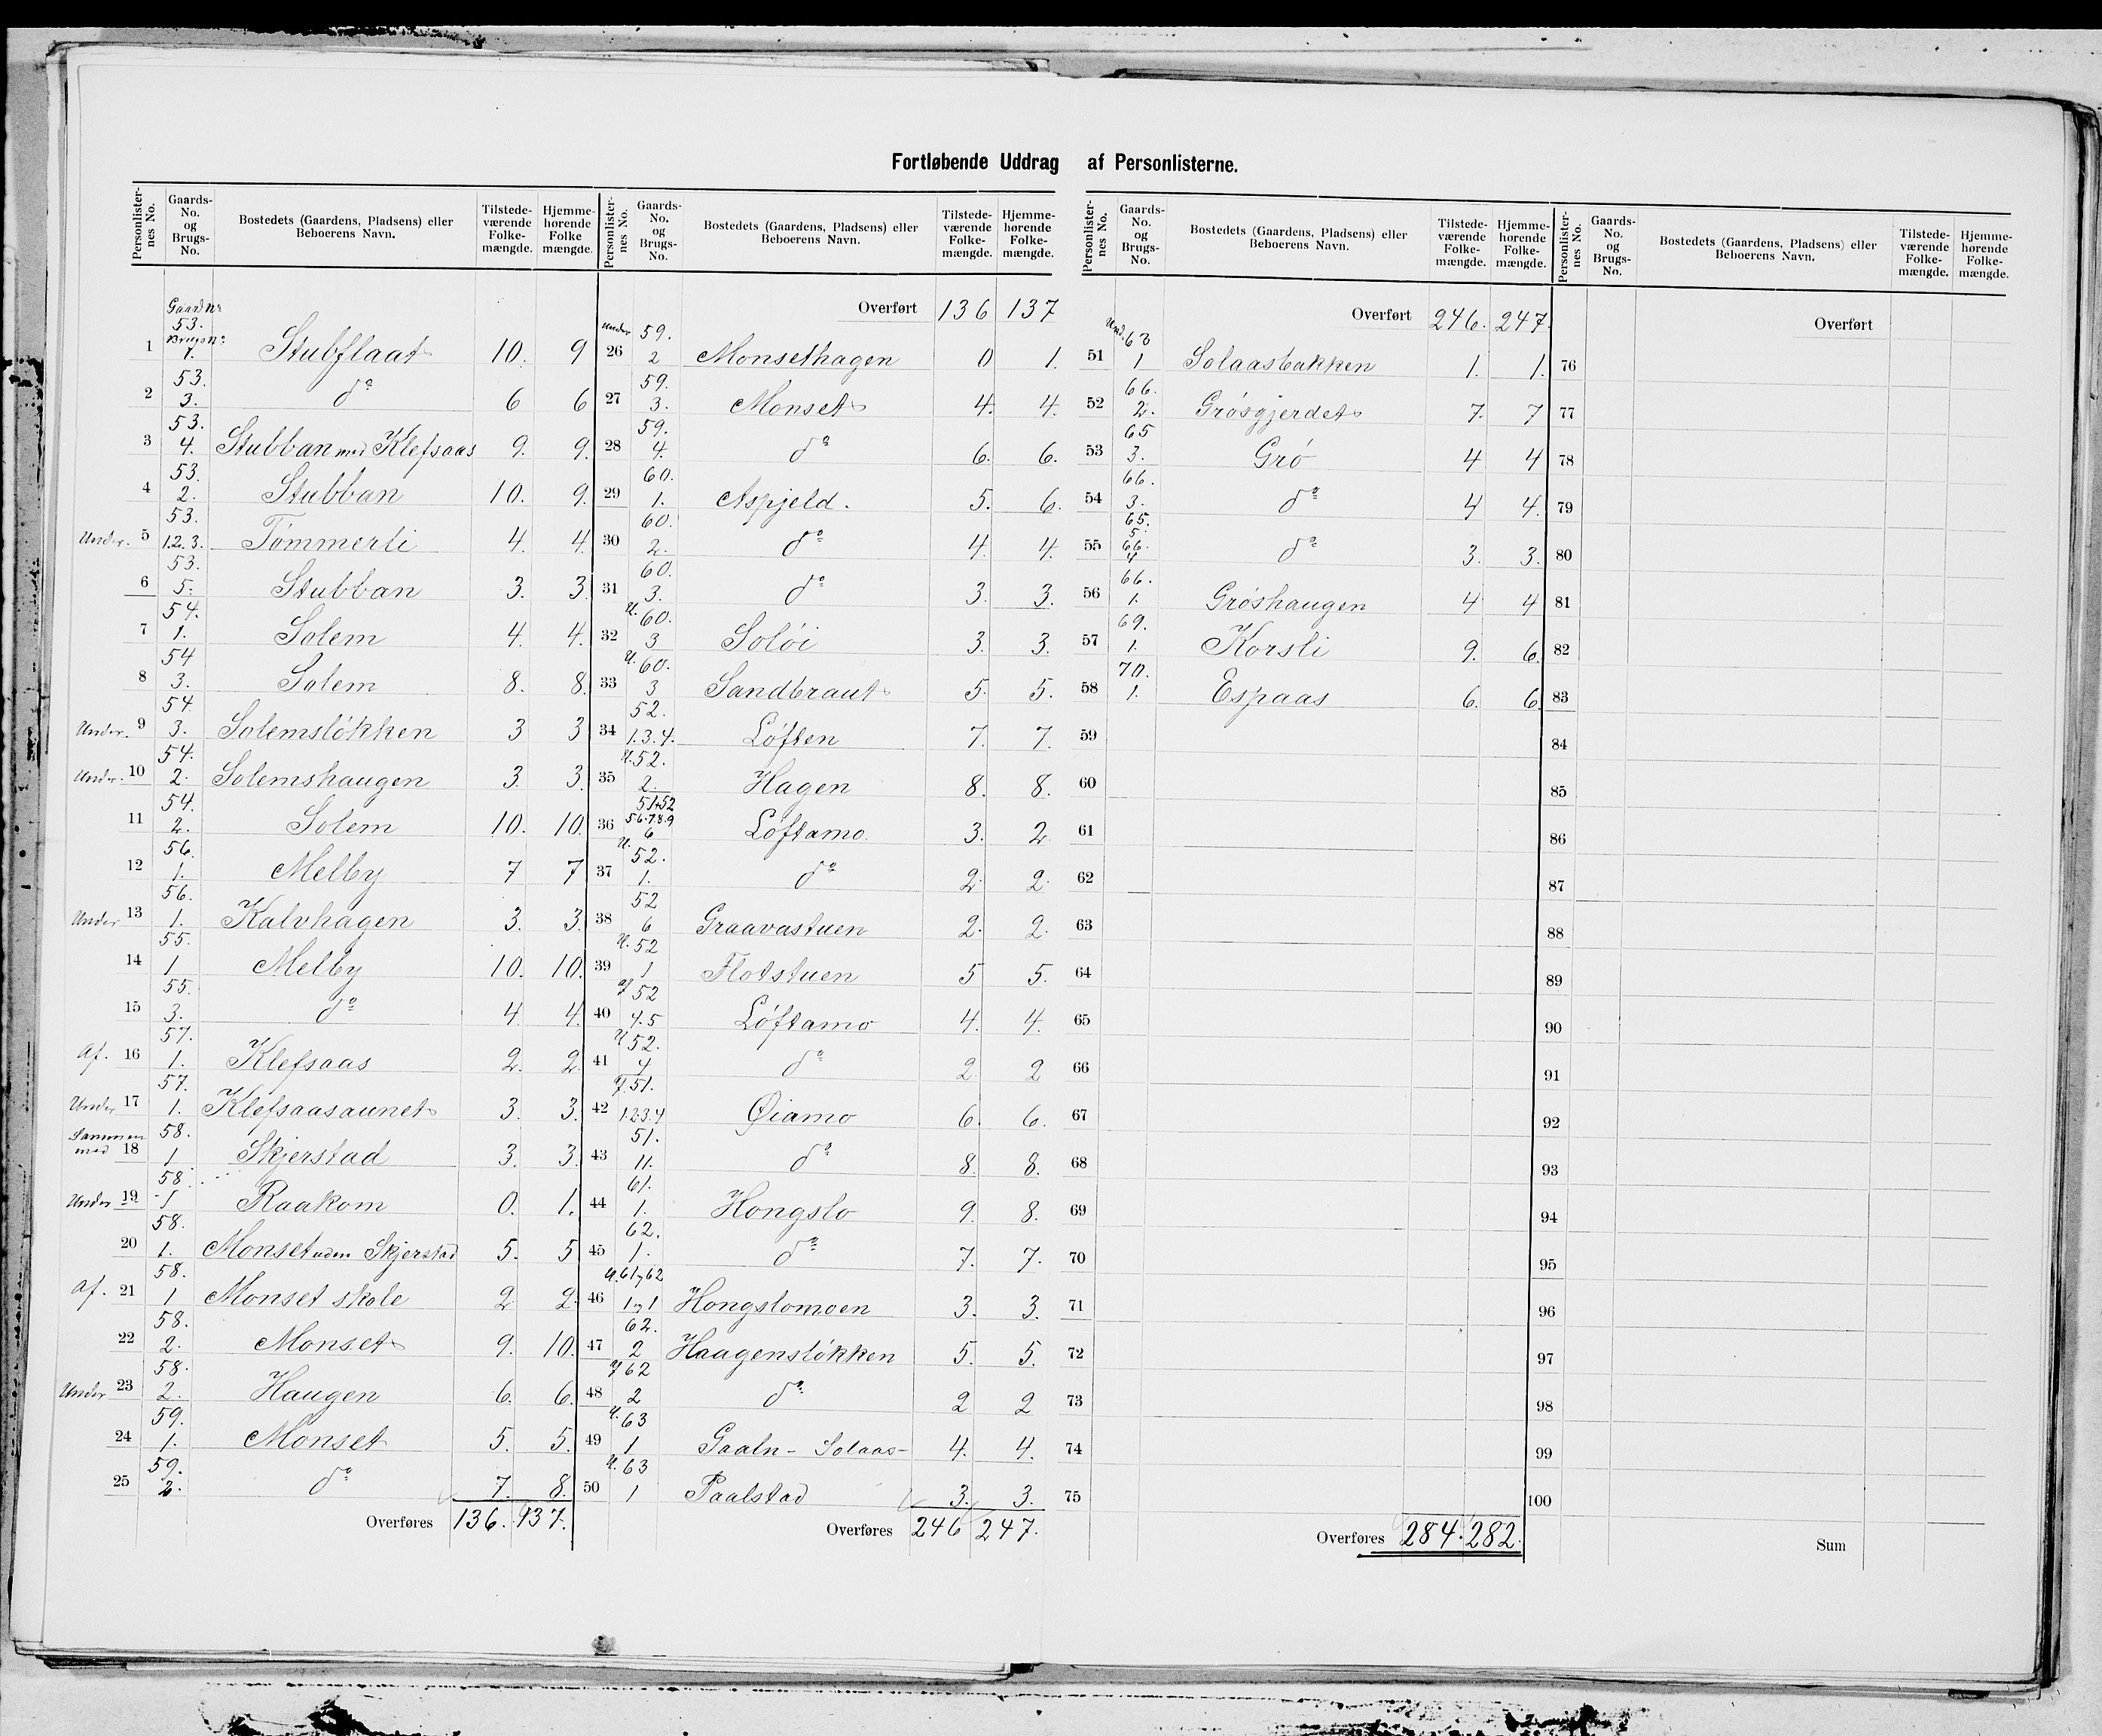 Fortløbende Uddrag af Personlisterne.
Personlister-nes No. Gaards-No. og Brugs-No. Bostedets (Gaardens, Pladsens) eller Beboerens Navn. Tilstede-værende Folke-mængde. Hjemme-hørende Folke mængde.
Gaard No 53. Brugs No
1 1. Stubflaat 10. 9
2 53. 3. do 6 6
3 53. 4. Stubban med Klefsaas 9. 9.
4 53. 2. Stubban 10. 9.
Under. 5 53. 1.2.3. Tømmerli 4. 4.
6 53. 5. Stubban 3. 3.
7 54. 1. Solem 4. 4.
8 54 3. Solem 8. 8.
Under. 9 54. 3. Solemsløkken 3 3
Under. 10 54. 2. Solemshaugen 3 3.
11 54. 2. Solem 10. 10.
12 56. 1. Melby 7 7
Under 13 56. 1. Kalvhagen 3. 3.
14 55. 1 Melby 10. 10.
15 55. 3. do 4 4.
Af. 16 57. 1. Klefsaas 2. 2
Under 17 57. 1. Klefsaasaunet 3. 3.
Sammen med 18 58. 1 Skjerstad 3. 3.
Under 19 58. 1 Raakom 0. 1.
20 58. 1. Monset uden Skjerstad 5. 5
Af. 21 58. 1 Monset skole 2 2
22 58. 2. Monset 9. 10.
Under 23 58. 2. Haugen 6. 6.
24 59. 1. Monset 5. 5.
25 59. 2. do 7. 8.
Overføres 136. 137.
Personlister-nes No. Gaards-No. og Brugs-No. Bostedets (Gaardens, Pladsens) eller Beboerens Navn. Tilstede-værende Folke-mængde. Hjemme-hørende Folke-mængde.
Overført 136 137
Under 26 59. 2 Monsethagen 0 1.
27 59. 3. Monset 4. 4.
28 59. 4. do 6. 6.
29 60. 1. Aspjeld. 5. 6.
30 60. 2. do 4. 4.
31 60. 3. do 3. 3.
32 U. 60. 3 Soløi 3. 3.
33 U. 60. 3 Sandbraut 5. 5.
34 52. 1.3.4. Løften 7. 7.
35 U. 52. 2. Hagen 8. 8.
36 51+52 56.7.8.9 6 Løftamo 3. 2
37 U. 52. 1. do 2 2.
38 52 6 Graavastuen 2. 2.
39 U. 52 1 Flotstuen 5 5.
40 af 52 4.5 Løftamo 4. 4.
41 af 52. 4 do 2 2
42 af 51. 1.2.3.4 Øiamo 6 6.
43 51. 11. do 8. 8.
44 61. 1. Hongslo 9. 8.
45 62. 1. do 7. 7.
46 U. 61 og 62 1 og 1 Hongslomoen 3. 3.
47 62. 2 Haagensløkken 5. 5.
48 af 62 2 do 2 2
49 U. 63 1 Gaaln - Solaas - 4. 4.
50 U. 63 1 Paalstad 3. 3.
Overføres 246 247.
Personlister-nes No. Gaards-No. og Brugs-No. Bostedets (Gaardens, Pladsens) eller Beboerens Navn. Tilstede-værende Folke-mængde. Hjemme-hørende Folke-mængde.
Overført 246. 247.
51 Und. 63 1 Solaasbakken 1. 1.
52 66. 2. Grøsgjerdet 7. 7
53 65 3. Grø 4 4
54 66. 3. do 4 4.
55 65. 5. 66. 4 do 3. 3.
56 66. 1. Grøshaugen 4 4
57 69. 1. Korsli 9. 6.
58 70. 1. Espaas 6. 6.
59
60
61
62
63
64
65
66
67
68
69
70
71
72
73
74
75
Overføres 284. 282.
Personlister-nes No. Gaards-No. og Brugs-No. Bostedets (Gaardens, Pladsens) eller Beboerens Navn. Tilstede-værende Folke-mængde. Hjemme-hørende Folke-mængde.
Overført
76
77
78
79
80
81
82
83
84
85
86
87
88
89
90
91
92
93
94
95
96
97
98
99
100
Sum